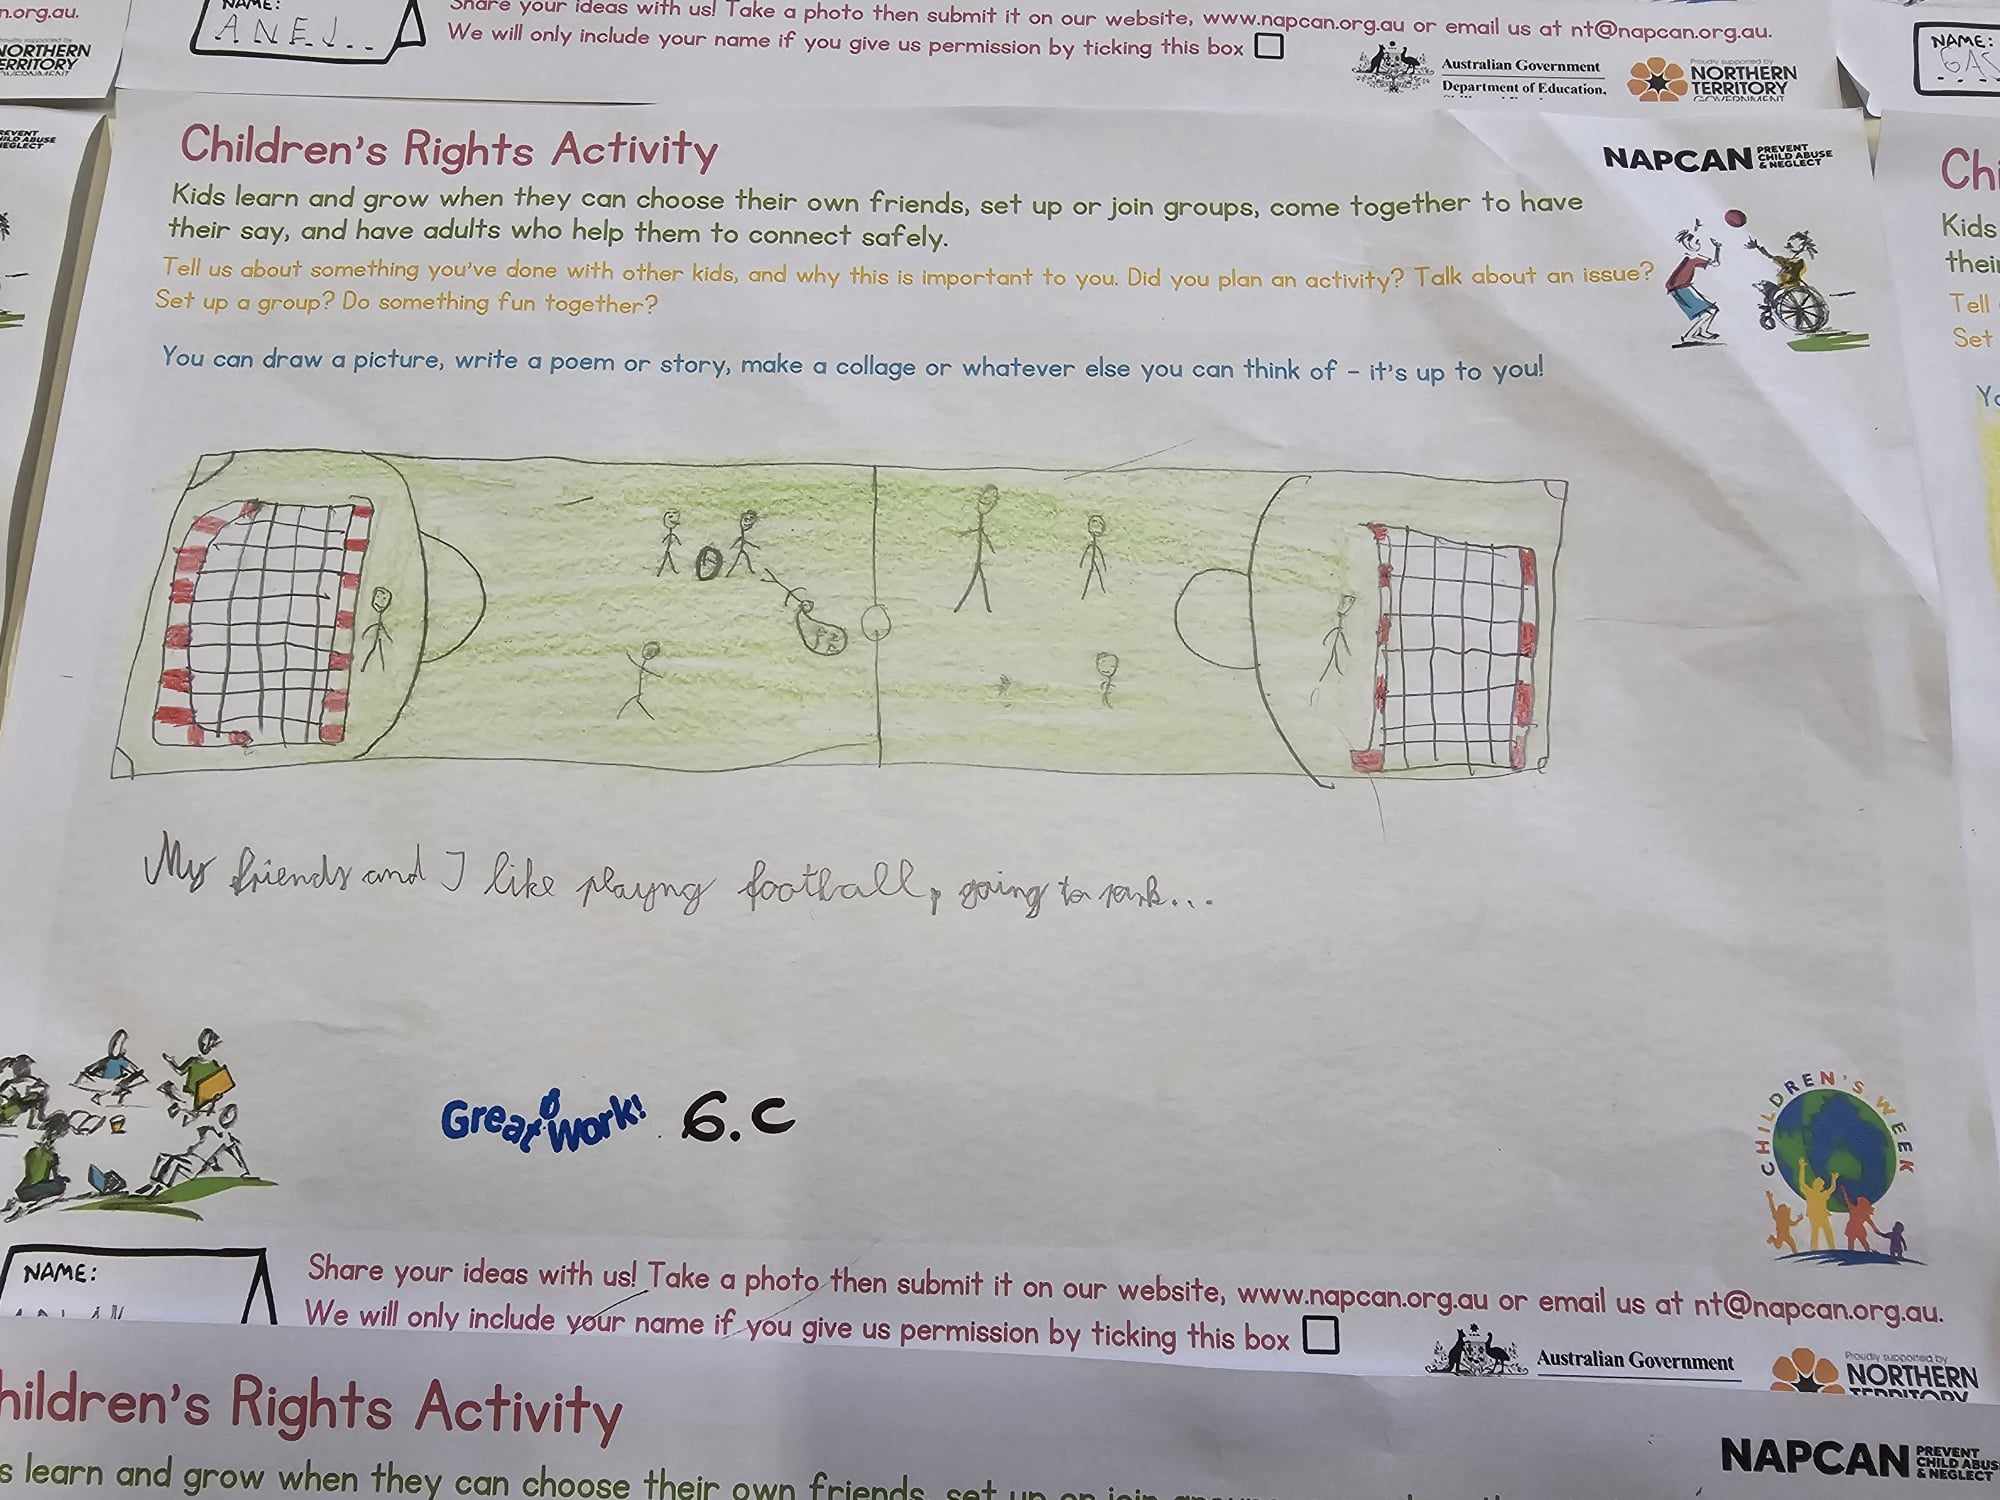 n.org.au.
NORTHERN
TERRITORY
GOVERNMENT
NAME:
ANEJ..
Share your ideas with us! Take a photo then submit it on our website, www.napcan.org.au or email us at nt@napcan.org.au.
We will only include your name if you give us permission by ticking this box
Australian Government
Department of Education,
Proudly supported by
NORTHERN
TERRITORY
GOVERNMENT
NAME:
PREVENT
CHILD ABUSE
& NEGLECT
Children's Rights Activity
NAPCAN PREVENT
CHILD ABUSE
& NEGLECT
Kids learn and grow when they can choose their own friends, set up or join groups, come together to have
their say, and have adults who help them to connect safely.
Tell us about something you've done with other kids, and why this is important to you. Did you plan an activity? Talk about an issue?
Set up a group? Do something fun together?
You can draw a picture, write a poem or story, make a collage or whatever else you can think of – it's up to you!
Chi
Kids
their
Tell
Set
Yo
My friends and I like playng football, going to park...
Great Work! 6.C
CHILDREN'S WEEK
NAME:
Share your ideas with us! Take a photo then submit it on our website, www.napcan.org.au or email us at nt@napcan.org.au.
We will only include your name if you give us permission by ticking this box
Australian Government
Proudly supported by
NORTHERN
TERRITORY
hildren's Rights Activity
NAPCAN PREVENT
CHILD ABUS
& NEGLECT
s learn and grow when they can choose their own friends, set up or join